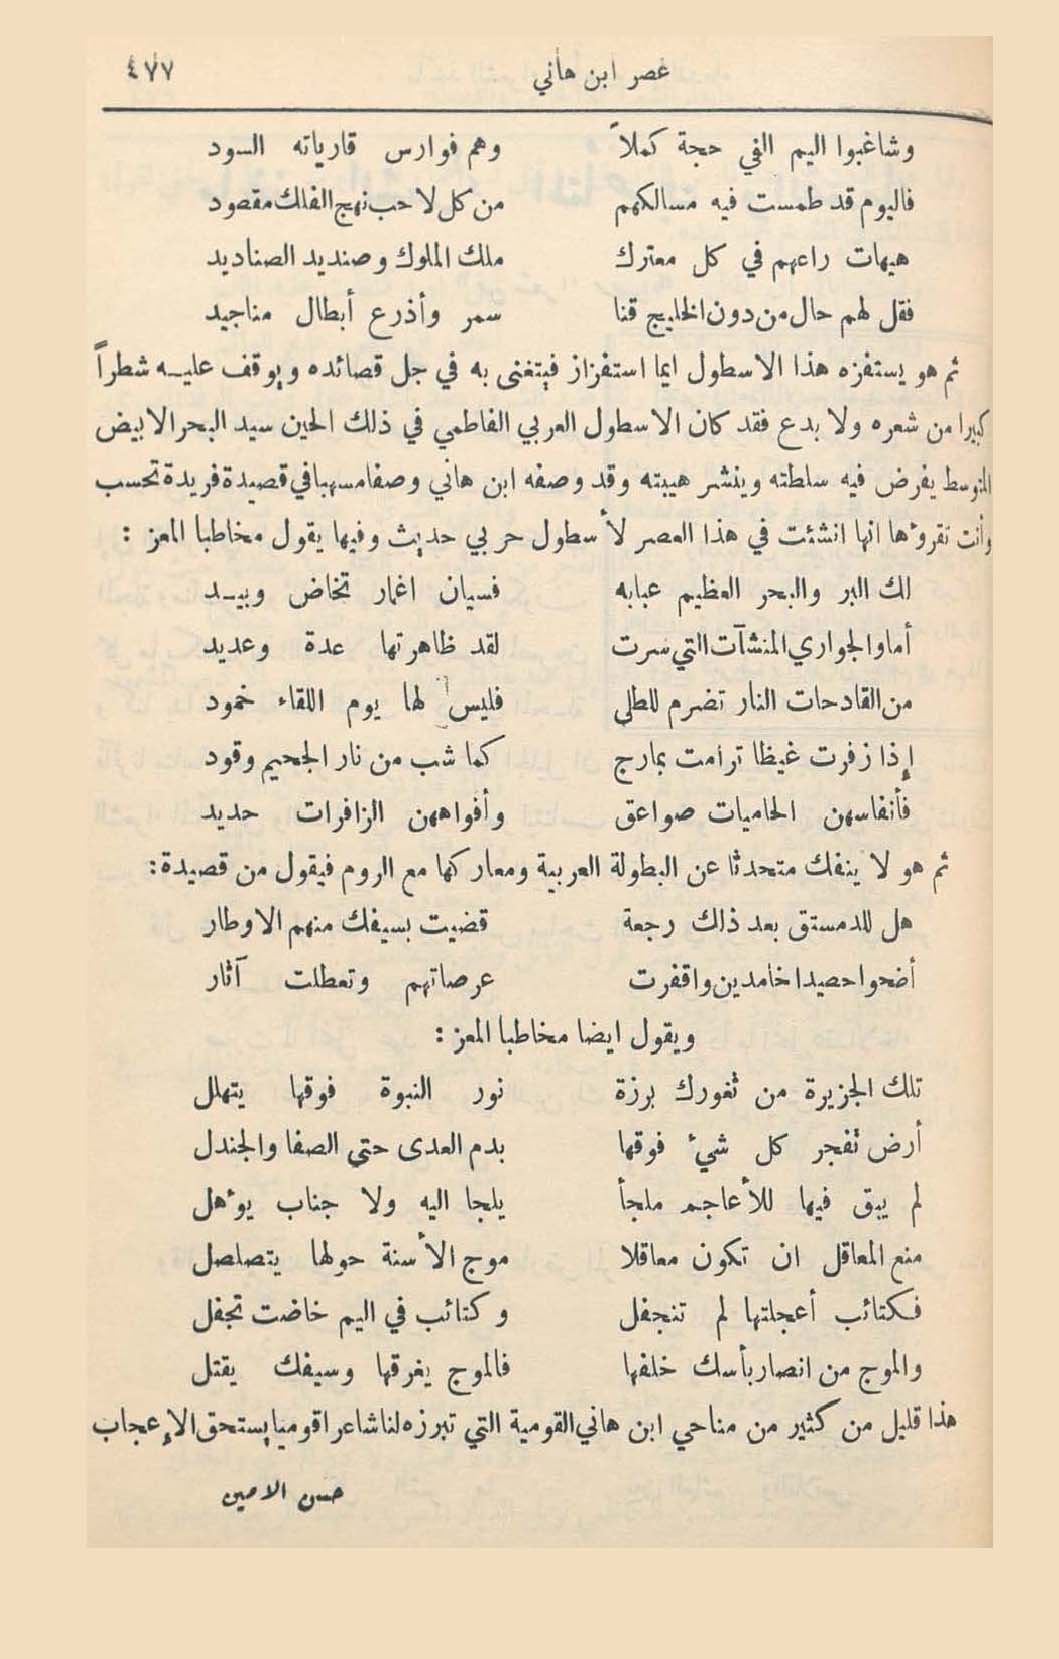 عصر ابن هأني ٤٧٧
وشاغبوا اليم الفي حجة كملاً وهم فوارس قارياته السود
فاليوم قد طمست فيه مسالكهم من كل لاحب نهج الفلك مقصود
هيهات راعهم في كل معترك ملك الملوك وصنديد الصناديد
فقل لهم حال من دون الخليج قنا سمر وأذرع أبطال مناجيد
ثم هو يستفزه هذا الاسطول ايما استفزاز فيتغنى به في جل قصائده ويوقف عليه شطراً
كبيرا من شعره ولا بدع فقد كان الاسطول العربي الفاطمي في ذلك الحين سيد البحر الابيض
المتوسط يفرض فيه سلطته وينشر هيبته وقد وصفه ابن هاني وصفا مسهبا في قصيدة فريدة تحسب
وأنت تقروءها انها انشئت في هذا العصر لأسطول حربي حديث وفيها يقول مخاطبا المعز :
لك البر والبحر العظيم عبابه فسيان اغمار تخاض وبيد
أما والجواري المنشآت التي سرت لقد ظاهرتها عدة وعديد
من القادحات النار تضرم للطلى فليس لها يوم اللقاء خمود
إذا زفرت غيظا ترامت بمارج كما شب من نار الجحيم وقود
فأنفاسهن الحاميات صواعق وأفواههن الزافرات حديد
ثم هو لا ينفك متحدثا عن البطولة العربية ومعاركها مع الروم فيقول من قصيدة :
هل للدمستق بعد ذلك رجعة قضيت بسيفك منهم الاوطار
أضحوا حصيدا خامدين واقفرت عرصاتهم وتعطلت آثار
ويقول ايضا مخاطبا المعز :
تلك الجزيرة من ثغورك برزة نور النبوة فوقها يتهلل
أرض تفجر كل شيء فوقها بدم العدى حتى الصفا والجندل
لم يبق فيها للأعاجم ملجأ يلجا اليه ولا جناب يوءهل
منع المعاقل ان تكون معاقلا موج الأسنة حولها يتصلصل
فكتائب أعجلتها لم تنجفل وكتائب في اليم خاضت تجفل
والموج من انصار بأسك خلفها فالموج يغرقها وسيفك يقتل
هذا قليل من كثير من مناحي ابن هاني القومية التي تبرزه لنا شاعرا قوميا يستحق الإعجاب
حسن الامين